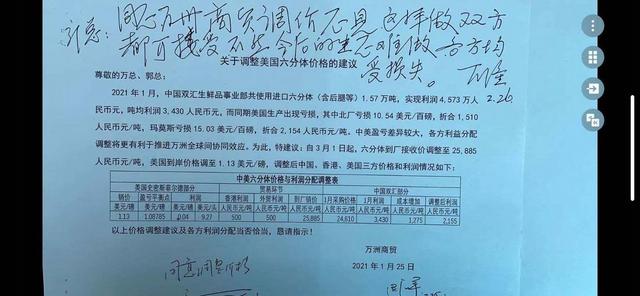 同意万洲商贸调价意见 这样做双方
都可接受 不然今后的生意难做 各方均
受损失。
2.26
关于调整美国六分体价格的建议
尊敬的万总、郭总:
2021 年 1 月,中国双汇生鲜品事业部共使用进口六分体(含后腿等)1.57 万吨,实现利润 4,573 万人
民币元,吨均利润 3,430 人民币元,而同期美国生产出现亏损,其中北厂亏损 10.54 美元/百磅,折合 1,510
人民币元/吨,玛莫斯亏损 15.03 美元/百磅,折合 2,154 人民币元/吨。中美盈亏差异较大,各方利益分配
调整将更有利于推进万洲全球间协同效应。为此,特建议:自 3 月 1 起,六分体到厂接价调整至 25,885
人民币元/吨,美国到岸价格调至 1.13 美元/磅,调整后中国、香港、美国三方价格和利润情况如下:
中美六分体价格与利润分配调整表
美国史密斯菲尔德部分 贸易环节 中国双汇部分
销价 盈亏平衡点 利润 香港利润 外贸利润 到厂销价 1月采购价格 1月利润 成本增加 调整后利润
美元/磅 美元/磅 美元/磅 美元/头 人民币元/吨 人民币元/吨 人民币元/吨 人民币元/吨 人民币元/吨 人民币元/吨 人民币元/吨
1.13 1.08785 0.04 9.27 500 500 25,885 24,610 3,430 1,275 2,155
以上价格调整建议及各方利润分配当否恰当,恳请指示!
万洲商贸
2021 年 1 月 25 日
同意调整价格